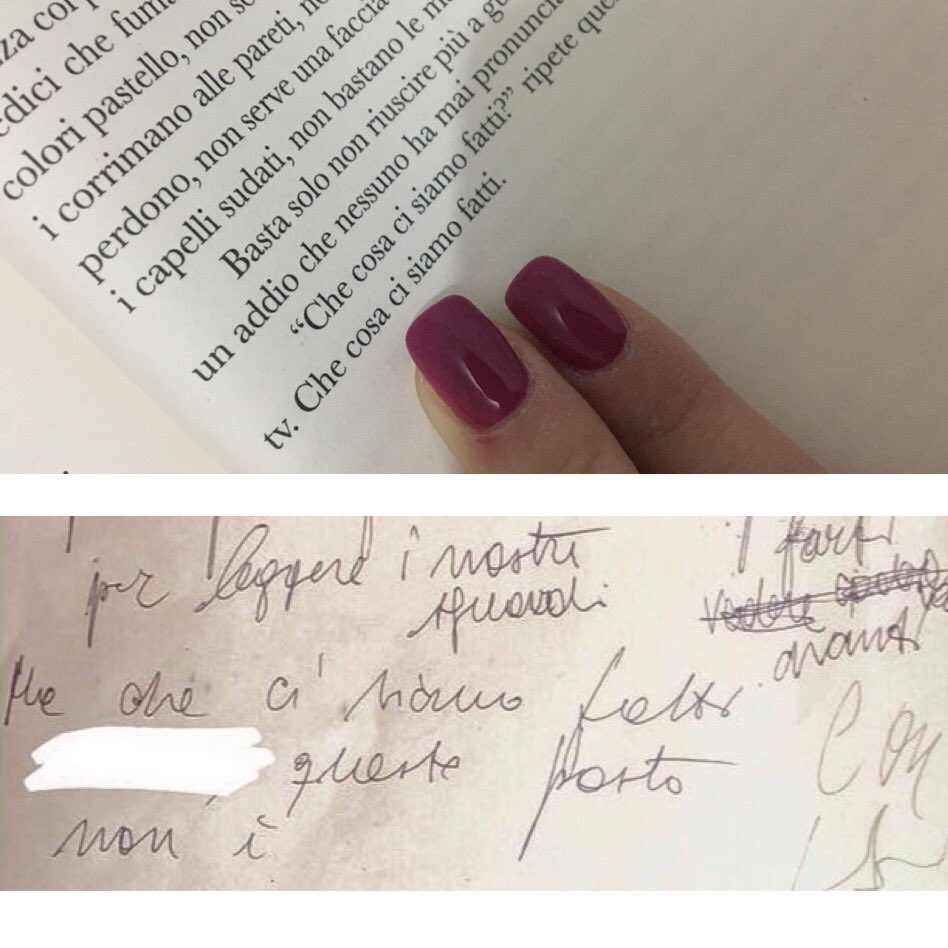 zza co
edici che fuma
colori pastello, non so
i corrimano alle pareti, no
perdono, non serve una faccia
i capelli sudati, non bastano le m
Basta solo non riuscire più a gu
un addio che nessuno ha mai pronuncia
“Che cosa ci siamo fatti?” ripete que
tv. Che cosa ci siamo fatti.
per leggere i nostri
sguardi
farti
vedere
avanti
Ma che ci siamo fatti
queste
Con
non è
posto